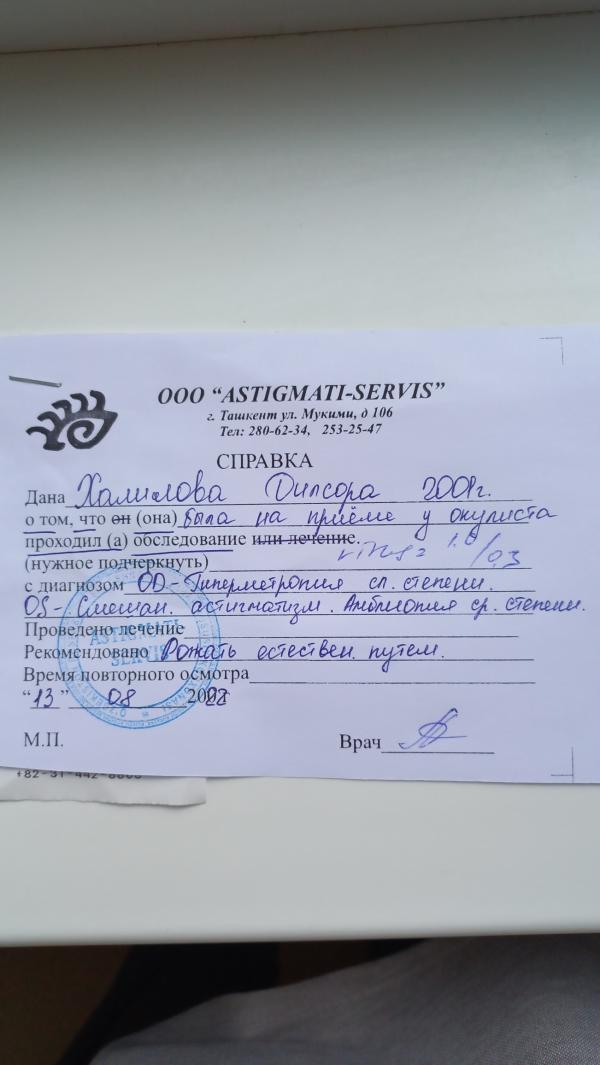 ООО “ASTIGMATI-SERVIS”
г. Ташкент ул. Мукими, д 106
Тел: 280-62-34, 253-25-47
СПРАВКА
Дана Халилова Дилсора
о том, что он (она) была на приёме у окулиста
проходил (а) обследование или лечение.
(нужное подчеркнуть) 1.0/0,3
с диагнозом OD - Гиперметропия сл. степени.
OS - Смешан. астигматизм. Амблиопия ср. степени.
Проведено лечение
Рекомендовано Рожать естествен. путем.
Время повторного осмотра
“13” 08
М.П. Врач
ASTIGMATI
SERVIS